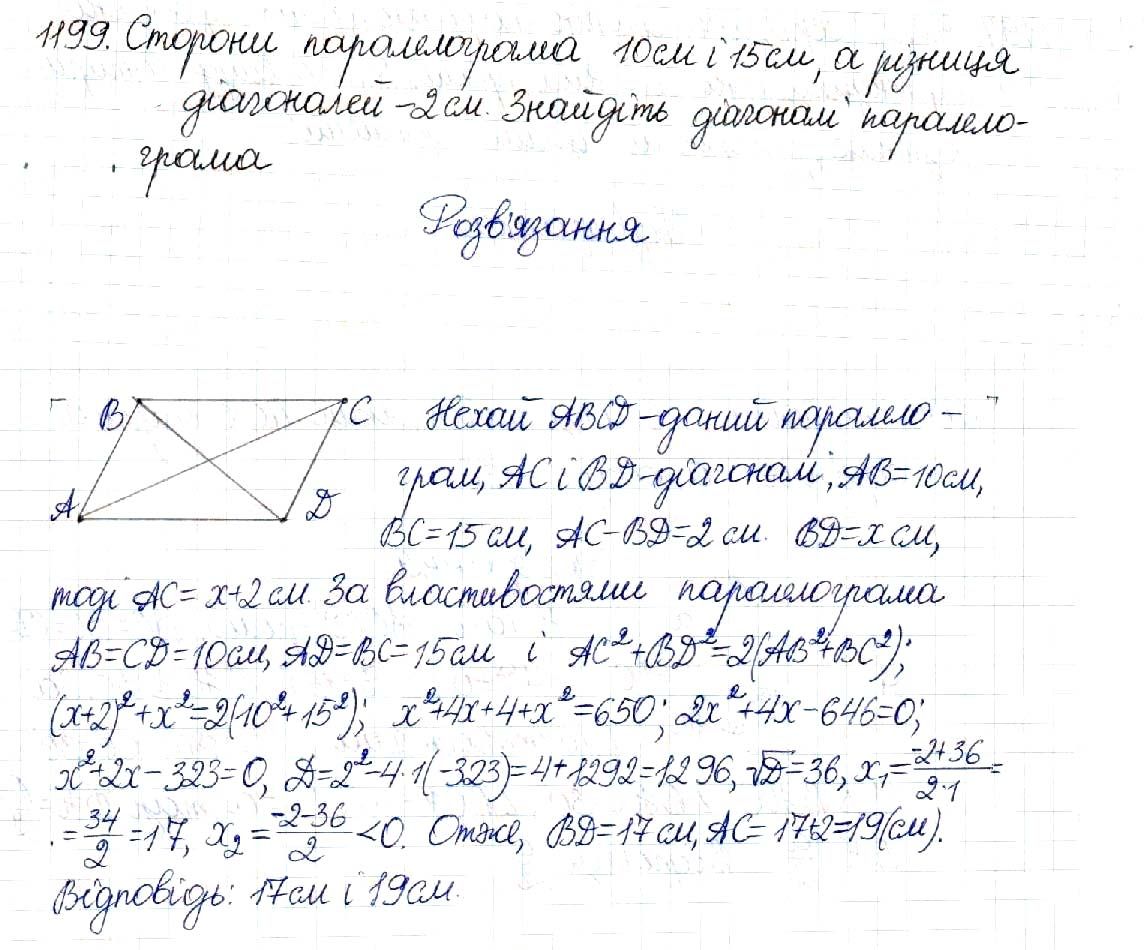 1199. Сторони паралелограма 10см і 15см, а різниця
діагоналей - 2 см. Знайдіть діагоналі паралело-
грама
Розв'язання
B C
A D
Нехай ABCD - даний парале​ло-
грам, AC і BD - діагоналі, AB=10см,
BC=15 см, AC-BD=2 см. BD=x см,
тоді AC=x+2 см. За властивостями паралелограма
AB=CD=10см, AD=BC=15см і AC²+BD²=2(AB²+BC²);
(x+2)²+x²=2(10²+15²); x²+4x+4+x²=650; 2x²+4x-646=0;
x²+2x-323=0, D=2²-4·1(-323)=4+1292=1296, √D=36, x₁=(-2+36)/(2·1)=
=34/2=17, x₂=(-2-36)/2<0. Отже, BD=17 см, AC=17+2=19(см).
Відповідь: 17см і 19см.